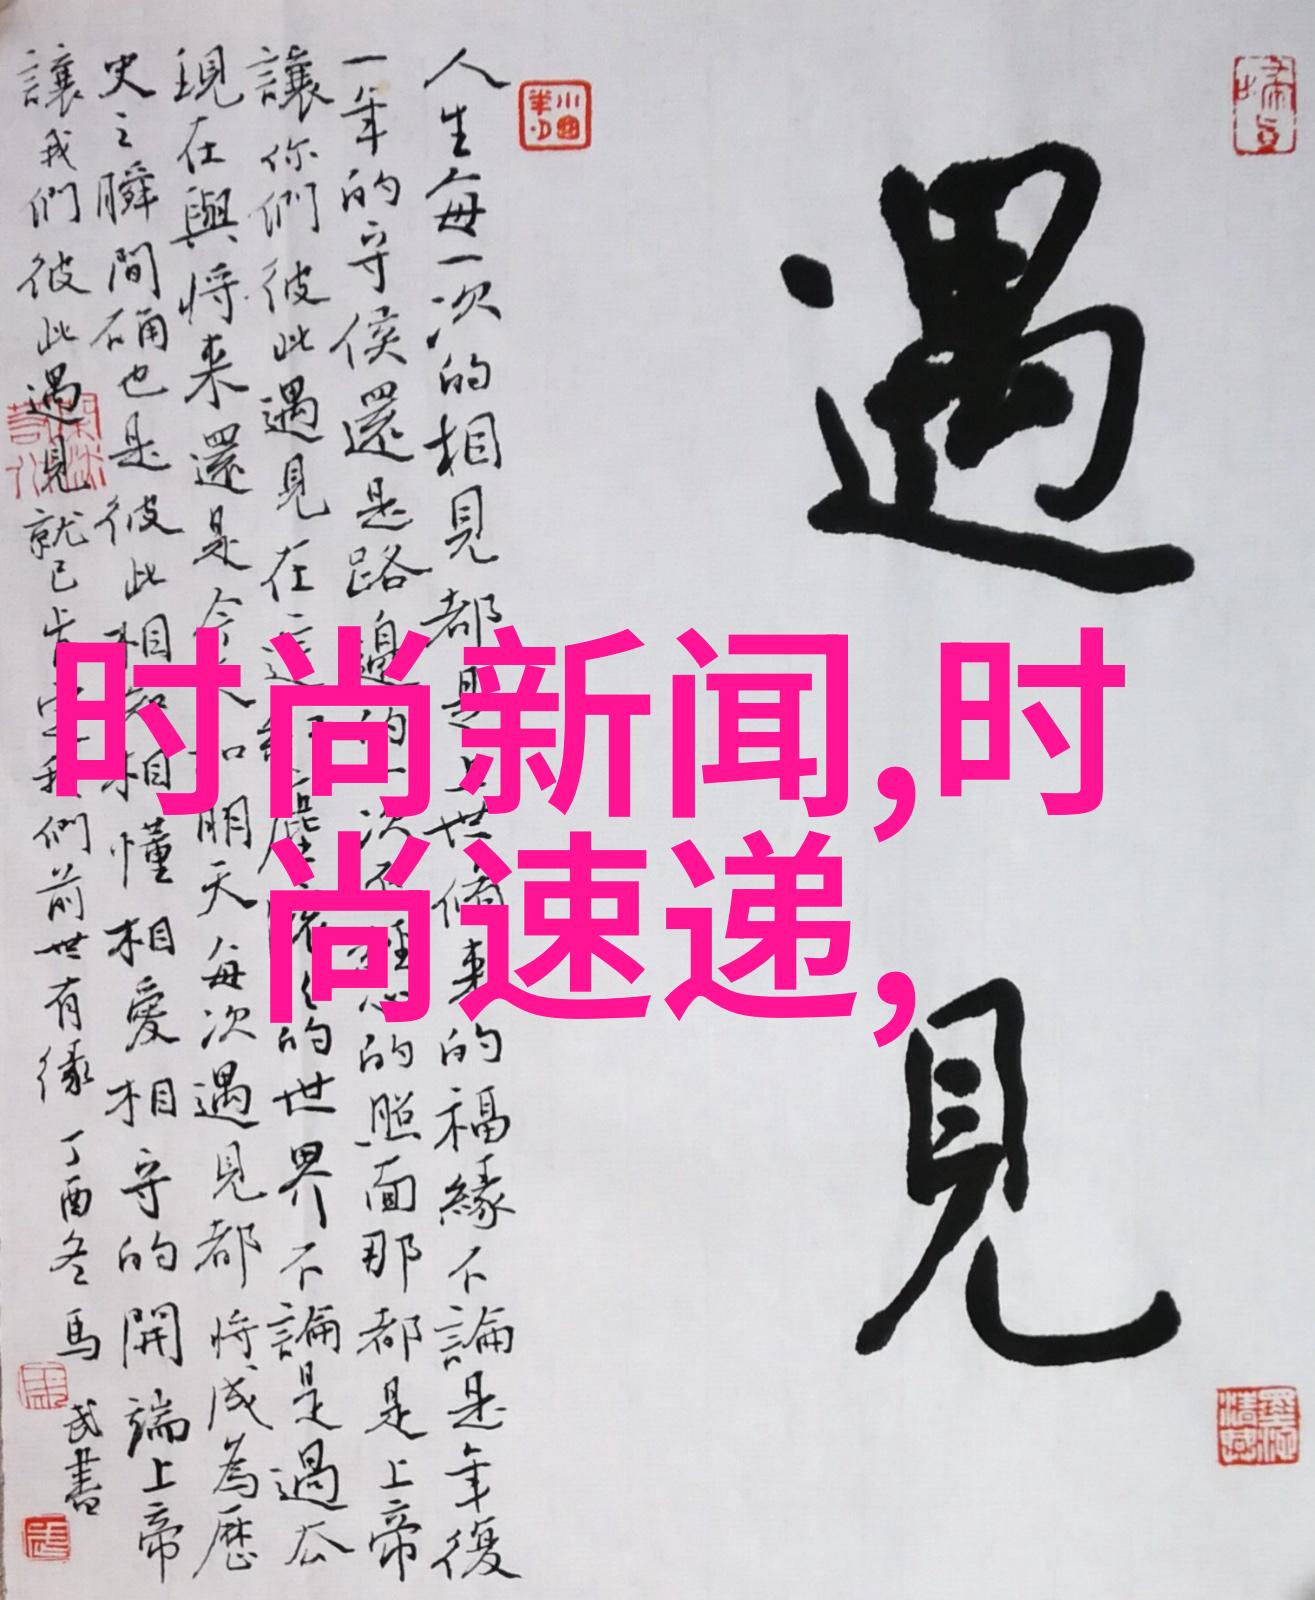 遇見
人生每一次的相見都是上世脩来的福緣不論是年復
一年的守侯還是路邊的一次不經意的照面那都是上帝
讓你們彼此遇見在這紅塵滾滾的世界不論是過去
現在與將来還是今天和明天每次遇見都將成為歷
史之瞬間确也是彼此相知相懂相愛相守的開端上帝
讓我們彼此遇見就已肯定我們前世有缘
丁酉冬馬武書
时尚新闻,时
尚速递,